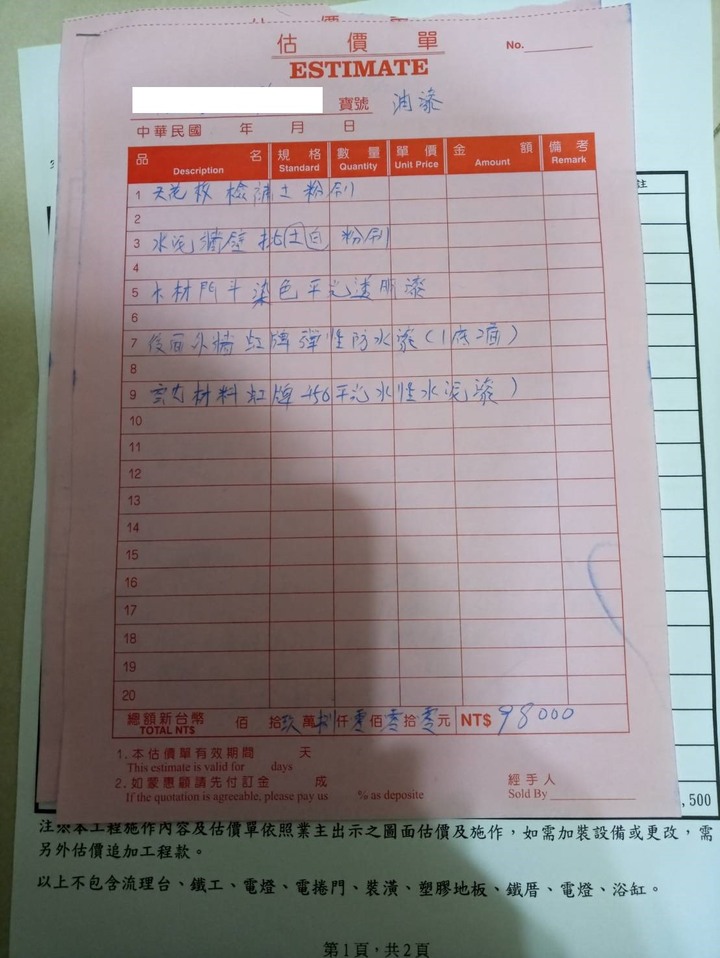 估價單
No.
ESTIMATE
寶號 油漆
中華民國 年 月 日
品名 規格 數量 單價 金額 備考
Description Standard Quantity Unit Price Amount Remark
1 天花板 檢補土 粉刷
2
3 水泥牆壁 批土 粉刷
4
5 木材門斗染色平光透明漆
6
7 後面外牆虹牌彈性防水漆(1底2面)
8
9 室內材料虹牌450平光水性水泥漆)
10
11
12
13
14
15
16
17
18
19
20
總額新台幣 佰 拾玖萬捌仟零佰零拾零元 NT$ 98000
TOTAL NT$
1.本估價單有效期間 天
This estimate is valid for days
2.如蒙惠顧請先付訂金 成
If the quotation is agreeable, please pay us % as deposite
經手人
Sold By
,500
注:依本工程施作內容及估價單依照業主出示之圖面估價及施作,如需加裝設備或更改,需
另外估價追加工程款。
以上不包含流理台、鐵工、電燈、電捲門、裝潢、塑膠地板、鐵厝、電燈、浴缸。
第1頁,共2頁